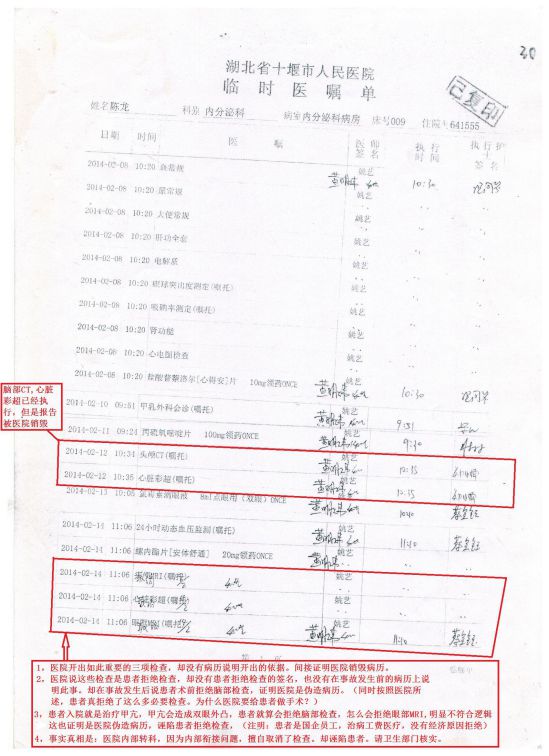 30
湖北省十堰市人民医院
临时医嘱单
已复印
姓名 陈龙 科别 内分泌科 病室 内分泌科病房 床号009 住院 641555
日期 时间 医嘱 医师签名 执行时间 执行护 签名
2014-02-08 10:20 血常规 姚艺 10:30
2014-02-08 10:20 尿常规 姚艺
2014-02-08 10:20 大便常规 姚艺
2014-02-08 10:20 肝功全套 姚艺
2014-02-08 10:20 电解质 姚艺
2014-02-08 10:20 眼球突出度测定(嘱托) 姚艺
2014-02-08 10:20 吸碘率测定(嘱托) 姚艺
2014-02-08 10:20 肾功能 姚艺
2014-02-08 10:20 心电图检查 姚艺
2014-02-08 10:20 盐酸普萘洛尔[心得安]片 10mg领药ONCE 姚艺 10:30
脑部CT,心脏
彩超已经执
行,但是报告
被医院销毁
2014-02-10 09:51 甲乳外科会诊(嘱托) 姚艺 9:51
2014-02-11 09:24 丙硫氧嘧啶片 100mg领药ONCE 姚艺 9:30
2014-02-12 10:34 头颅CT(嘱托) 姚艺 10:35
2014-02-12 10:35 心脏彩超(嘱托) 姚艺
2014-02-13 10:05 氯霉素滴眼液 8ml点眼用(双眼)ONCE 姚艺 10:40
2014-02-14 11:06 24小时动态血压监测(嘱托) 姚艺 11:40
2014-02-14 11:06 螺内酯片[安体舒通] 20mg领药ONCE 姚艺
2014-02-14 11:06 MRI(嘱托) 姚艺
2014-02-14 11:06 心脏彩超(嘱托) 姚艺
2014-02-14 11:06 MRI(嘱托) 姚艺 11:10
1,医院开出如此重要的三项检查,却没有病历说明开出的依据。间接证明医院销毁病历。
2,医院说这些检查是患者拒绝检查,却没有患者拒绝检查的签名,也没有在事故发生前的病历上说
明此事,却在事故发生后说患者术前拒绝脑部检查,证明医院是伪造病历。(同时按照医院所
述,患者真拒绝了这么多必要检查。为什么医院要给患者做手术?)
3,患者入院就是治疗甲亢,甲亢会造成双眼外凸,患者就算会拒绝脑部检查,怎么会拒绝眼部MRI,明显不符合逻辑
这也证明是医院伪造病历,诬陷患者拒绝检查,(注明:患者是国企员工,治病工费医疗,没有经济原因拒绝)
4,事实真相是:医院内部转科,因为内部衔接问题,擅自取消了检查。却诬陷患者。请卫生部门核实。